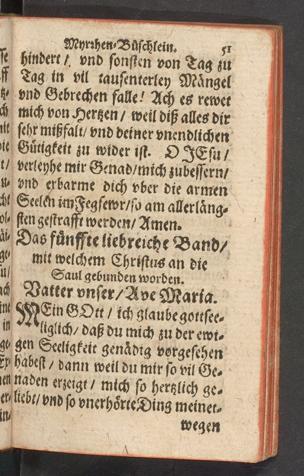 Myrrhen-Büschlein. 51
hindert/ vnd sonsten von Tag zu
Tag in vil tausenterley Mängel
vnd Gebrechen falle! Ach es rewet
mich von Hertzen/ weil diß alles dir
sehr mißfalt/ vnd deiner vnendlichen
Gütigkeit zu wider ist. O JEsu/
verleyhe mir Genad/ mich zubessern/
vnd erbarme dich vber die armen
Seelen im Fegfewr/ so am allerläng-
sten gestrafft werden/ Amen.
Das fünffte liebreiche Band/
mit welchem Christus an die
Saul gebunden worden.
Vatter vnser/ Ave Maria.
MEin GOtt/ ich glaube gottsee-
liglich/ daß du mich zu der ewi-
gen Seeligkeit genädig vorgesehen
habest/ dann weil du mir so vil Ge-
naden erzeigt/ mich so hertzlich ge-
liebt/ vnd so vnerhörte Ding meinet-
wegen